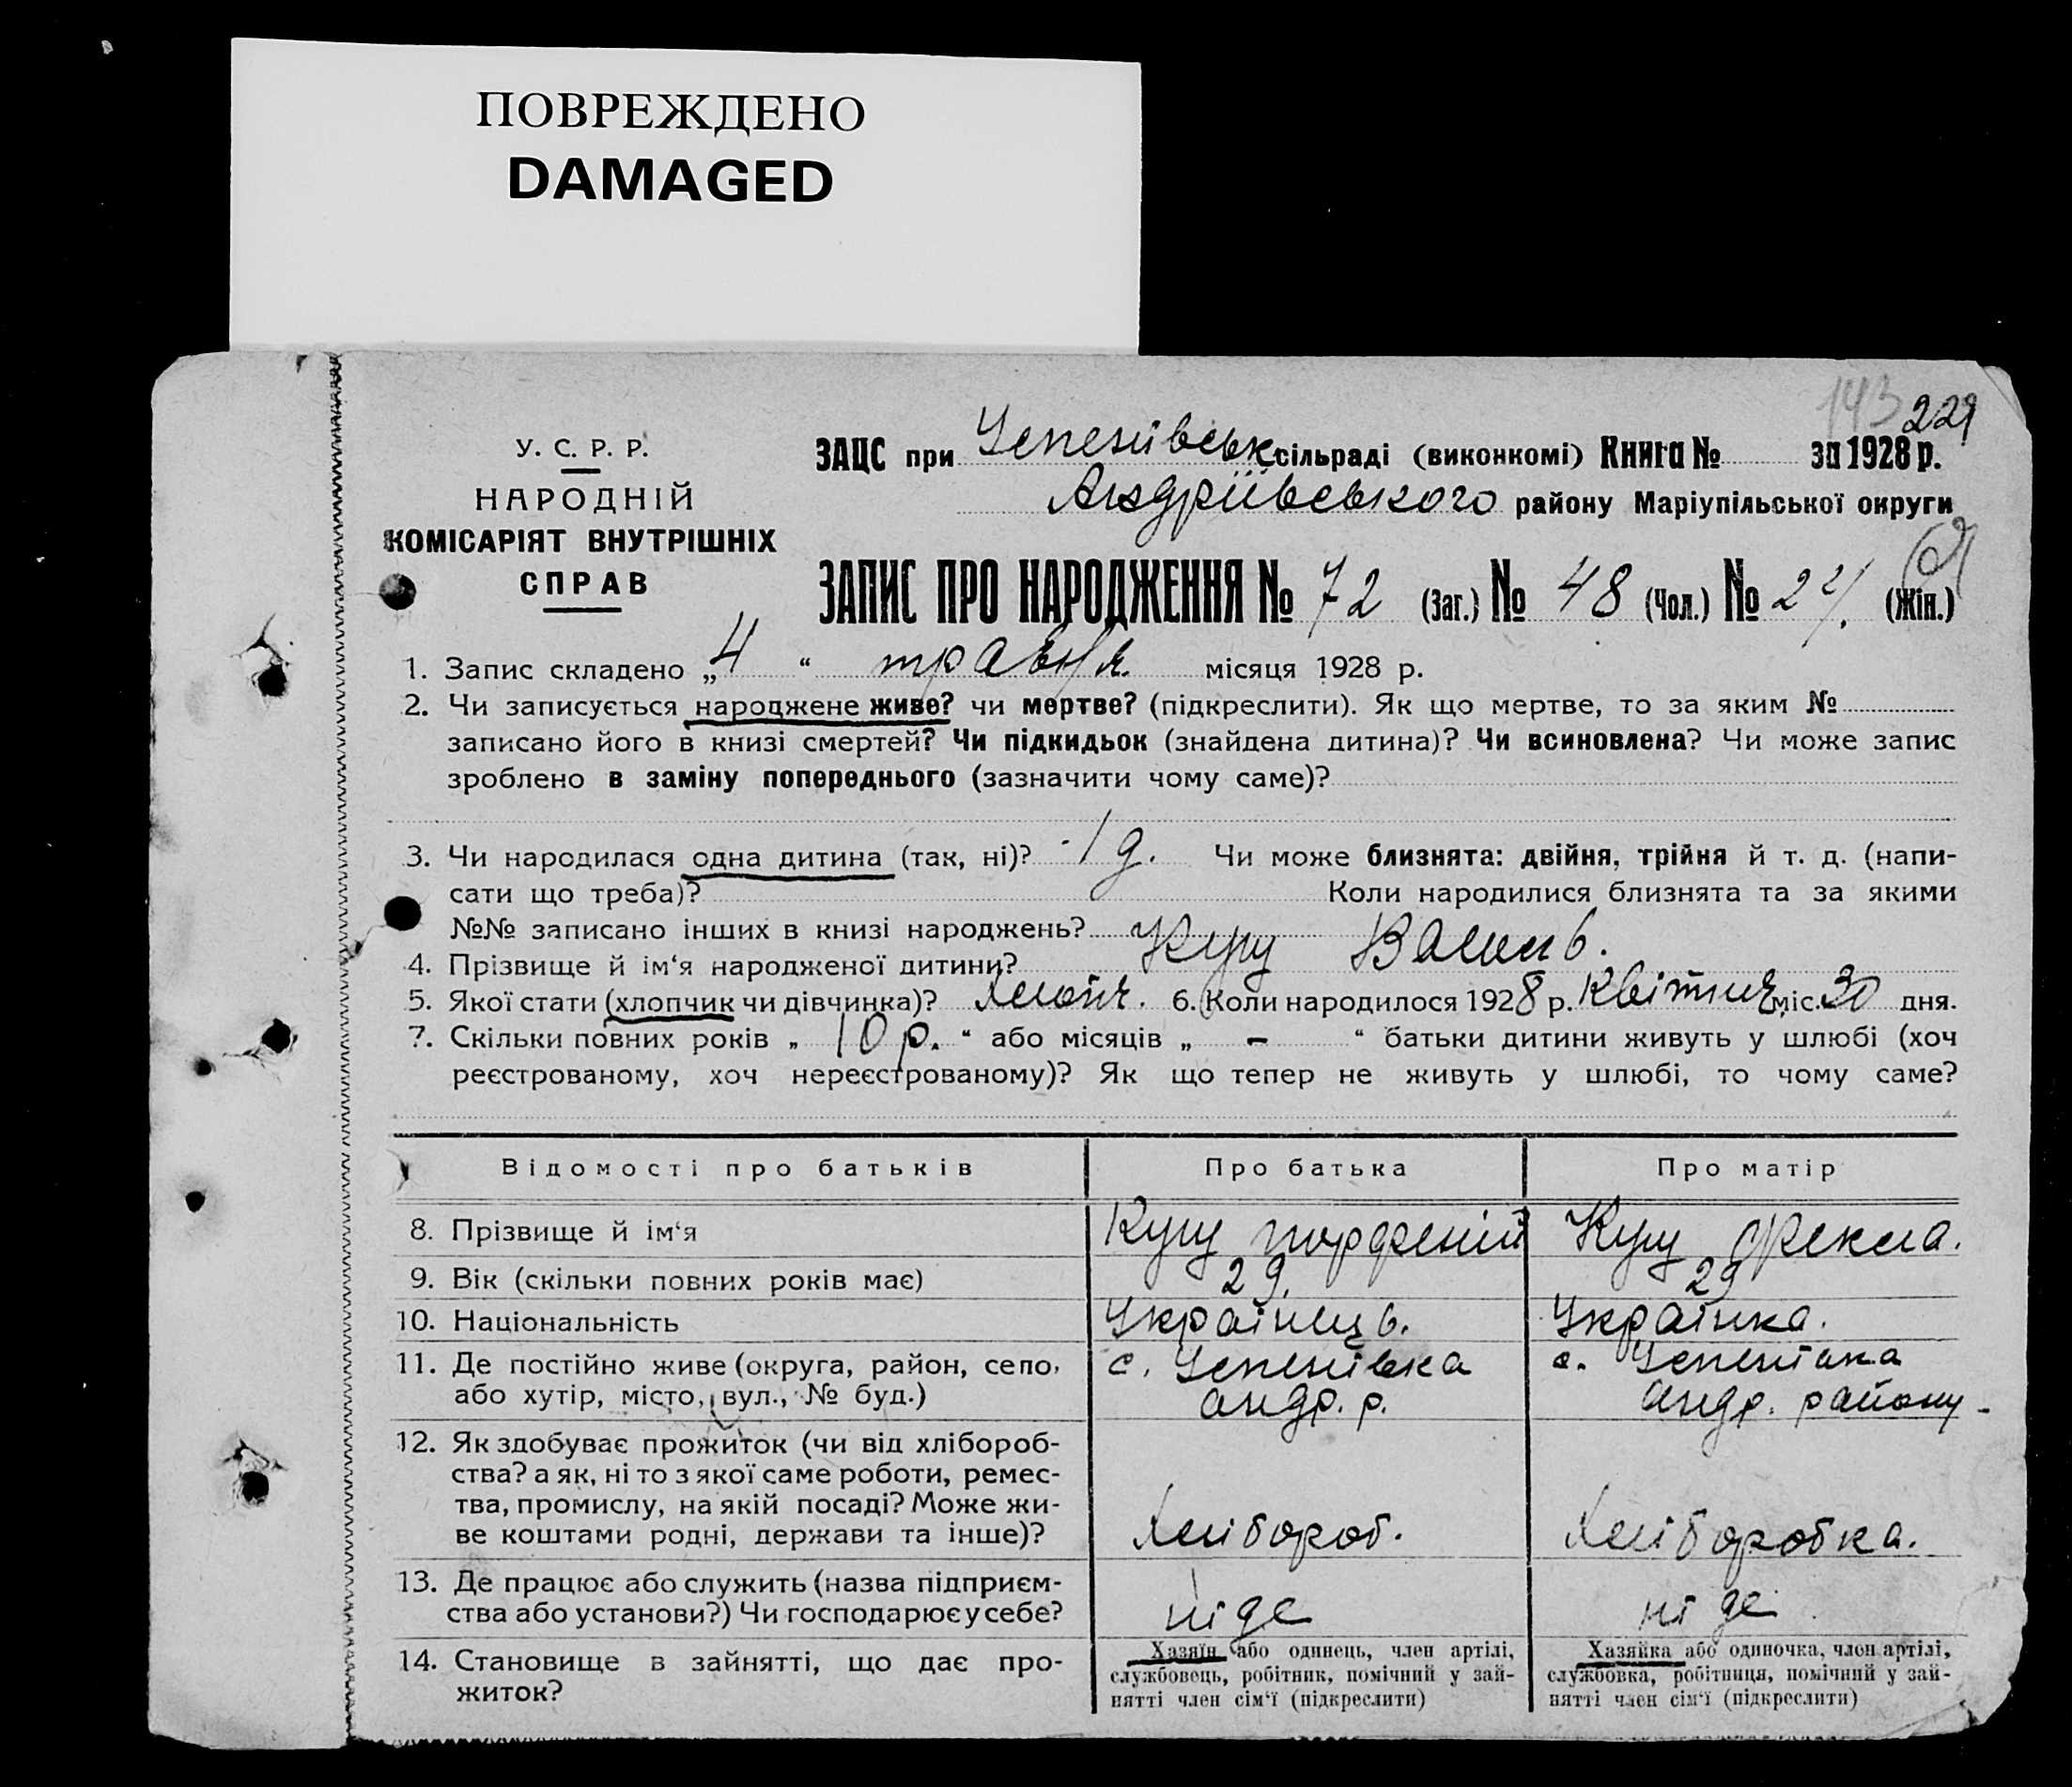 ПОВРЕЖДЕНО
DAMAGED
143 229
У. С. Р. Р.
НАРОДНІЙ
КОМІСАРІЯТ ВНУТРІШНІХ
СПРАВ
ЗАЦС при Успенівськ сільраді (виконкомі) Книга № за 1928 р.
Андріївського району Маріупільської округи
ЗАПИС ПРО НАРОДЖЕННЯ № 72 (Заг.) № 48 (Чол.) № 24. (Жін.)
1. Запис складено „4 “ травня місяця 1928 р.
2. Чи записується народжене живе? чи мертве? (підкреслити). Як що мертве, то за яким №
записано його в книзі смертей? Чи підкидьок (знайдена дитина)? Чи всиновлена? Чи може запис
зроблено в заміну попереднього (зазначити чому саме)?
3. Чи народилася одна дитина (так, ні)? 1 д. Чи може близнята: двійня, трійня й т. д. (напи-
сати що треба)? Коли народилися близнята та за якими
№№ записано інших в книзі народжень?
4. Прізвище й ім‘я народженої дитини? Кущ
5. Якої стати (хлопчик чи дівчинка)? Хлопч. 6. Коли народилося 1928 р. Квітня міс. 30 дня.
7. Скільки повних років „ 10 р. “ або місяців „ - “ батьки дитини живуть у шлюбі (хоч
реєстрованому, хоч нереєстрованому)? Як що тепер не живуть у шлюбі, то чому саме?
Відомості про батьків Про батька Про матір
8. Прізвище й ім‘я Кущ Порфеній Кущ Фекла.
9. Вік (скільки повних років має) 29. 29
10. Національність Українець. Українка.
11. Де постійно живе (округа, район, село, с. Успенівка с. Успенівка
або хутір, місто, вул., № буд.) андр. р. андр. району
12. Як здобуває прожиток (чи від хлібороб-
ства? а як, ні то з якої саме роботи, ремес-
тва, промислу, на якій посаді? Може жи-
ве коштами родні, держави та інше)? Хлібороб. Хліборобка.
13. Де працює або служить (назва підприєм-
ства або установи?) Чи господарює у себе? ніде ні де
14. Становище в зайнятті, що дає про-
житок?
Хазяїн або одинець, член артілі,
службовець, робітник, помічний у зай-
нятті член сім‘ї (підкреслити)
Хазяйка або одиночка, член артілі,
службовка, робітниця, помічний у зай-
нятті член сім‘ї (підкреслити)